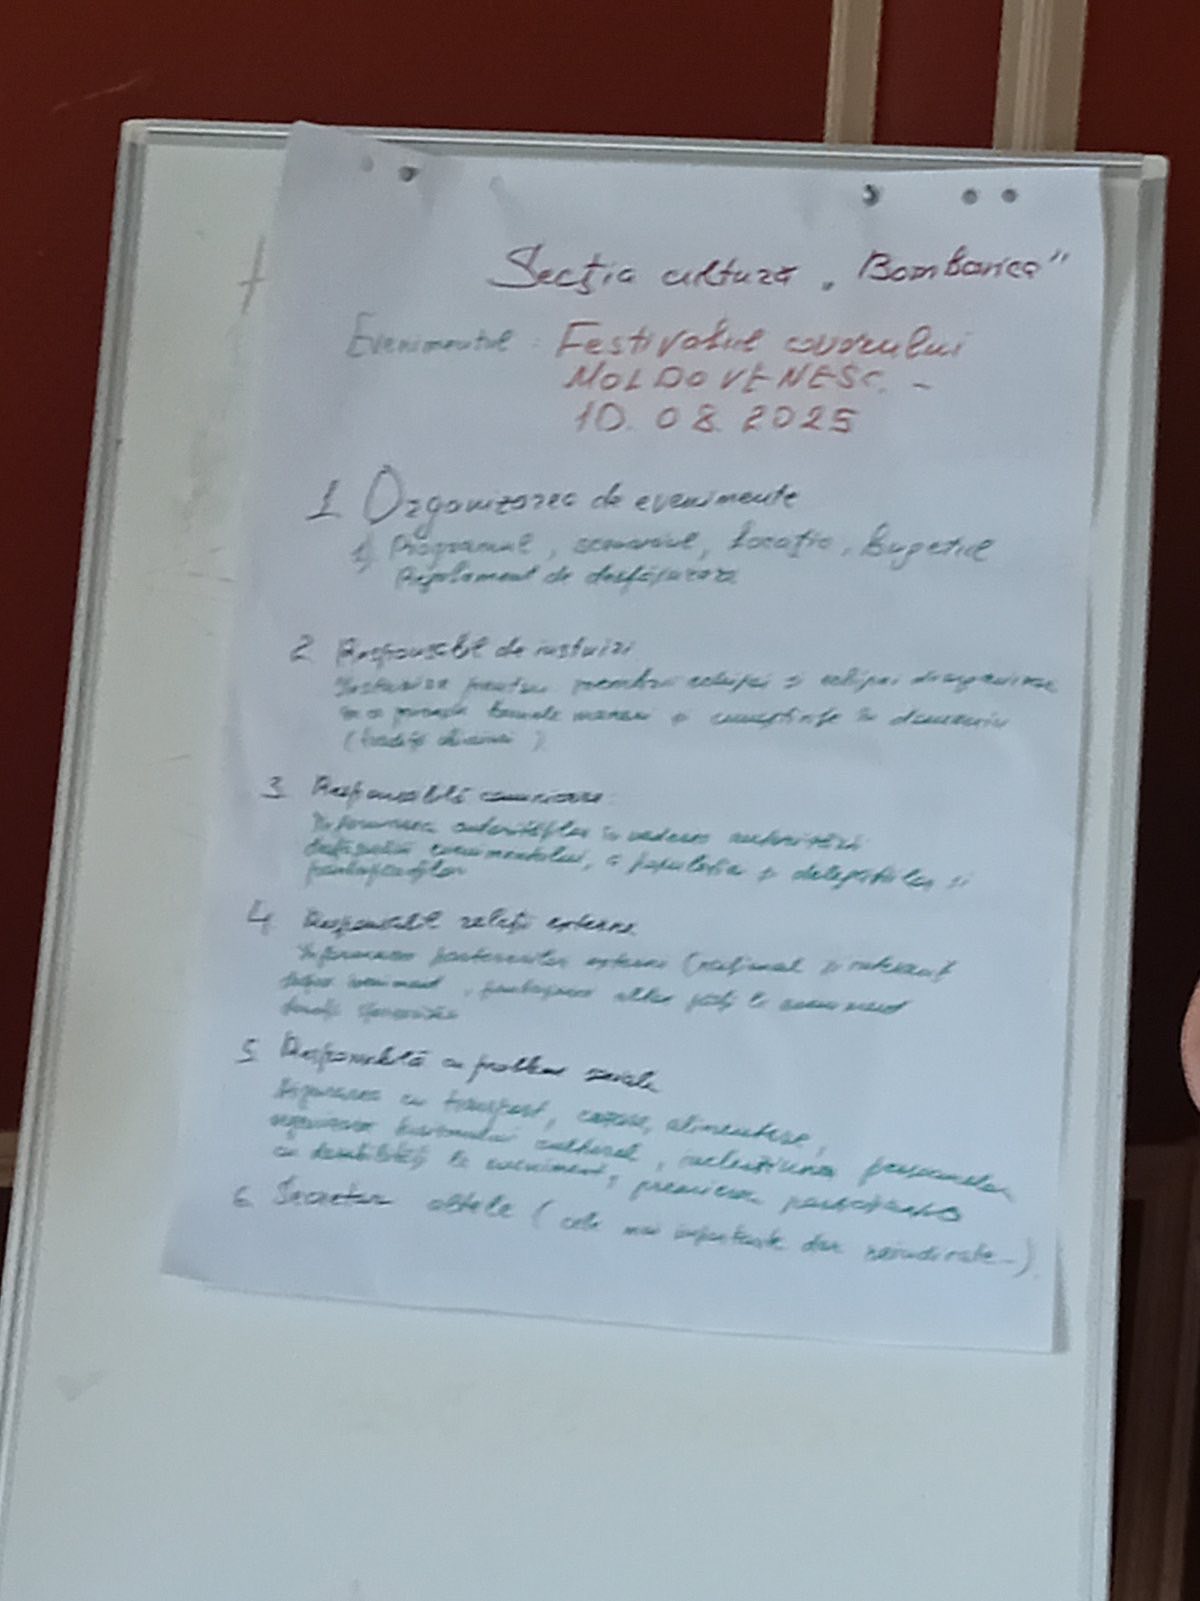 Secția cultură „Bombarica"
Evenimentul : Festivalul covorului
MOLDOVENESC. -
10.08.2025
1 Organizarea de evenimente
1) Programul, scenariul, Locația, Bugetul
Regulament de desfășurare
2 Responsabil de instruiri
Instruirea pentru membrii echipei și echipei de organizare
și cunoștințe în domeniu
(tradiții
3 Responsabilă comunicare:
Informarea autorităților în vederea
evenimentului, a populației și delegațiilor și
participanților
4 Responsabil relații externe
Informarea partenerilor externi (național și internaț
eveniment, participarea altor țări la eveniment
5 Responsabilă cu probleme sociale
Asigurarea cu transport, cazare, alimentare,
organizarea turismului cultural, incluziunea persoanelor
cu dizabilități la eveniment, premierea participanților
6 Secretar altele (cele mai importante dar neindicate-)